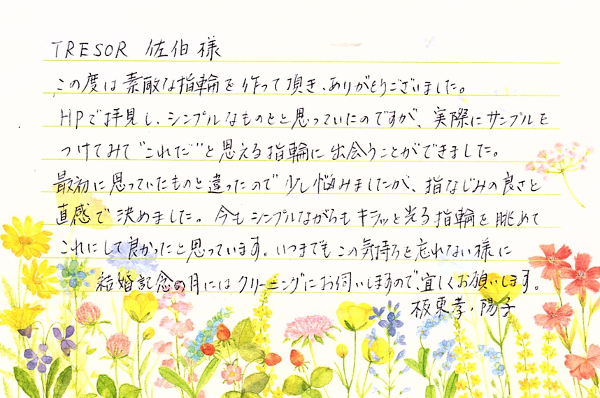 TRESOR 佐伯様
この度は素敵な指輪を作って頂き、ありがとうございました。
HPで拝見し、シンプルなものをと思っていたのですが、実際にサンプルを
つけてみて"これだ"と思える指輪に出会うことができました。
最初に思っていたものと違ったので少し悩みましたが、指なじみの良さと
直感で決めました。今もシンプルながらもキラッと光る指輪を眺めて
これにして良かったと思っています。いつまでもこの気持ちを忘れない様に
結婚記念の月にはクリーニングにお伺いしますので、宜しくお願いします。
板東孝・陽子